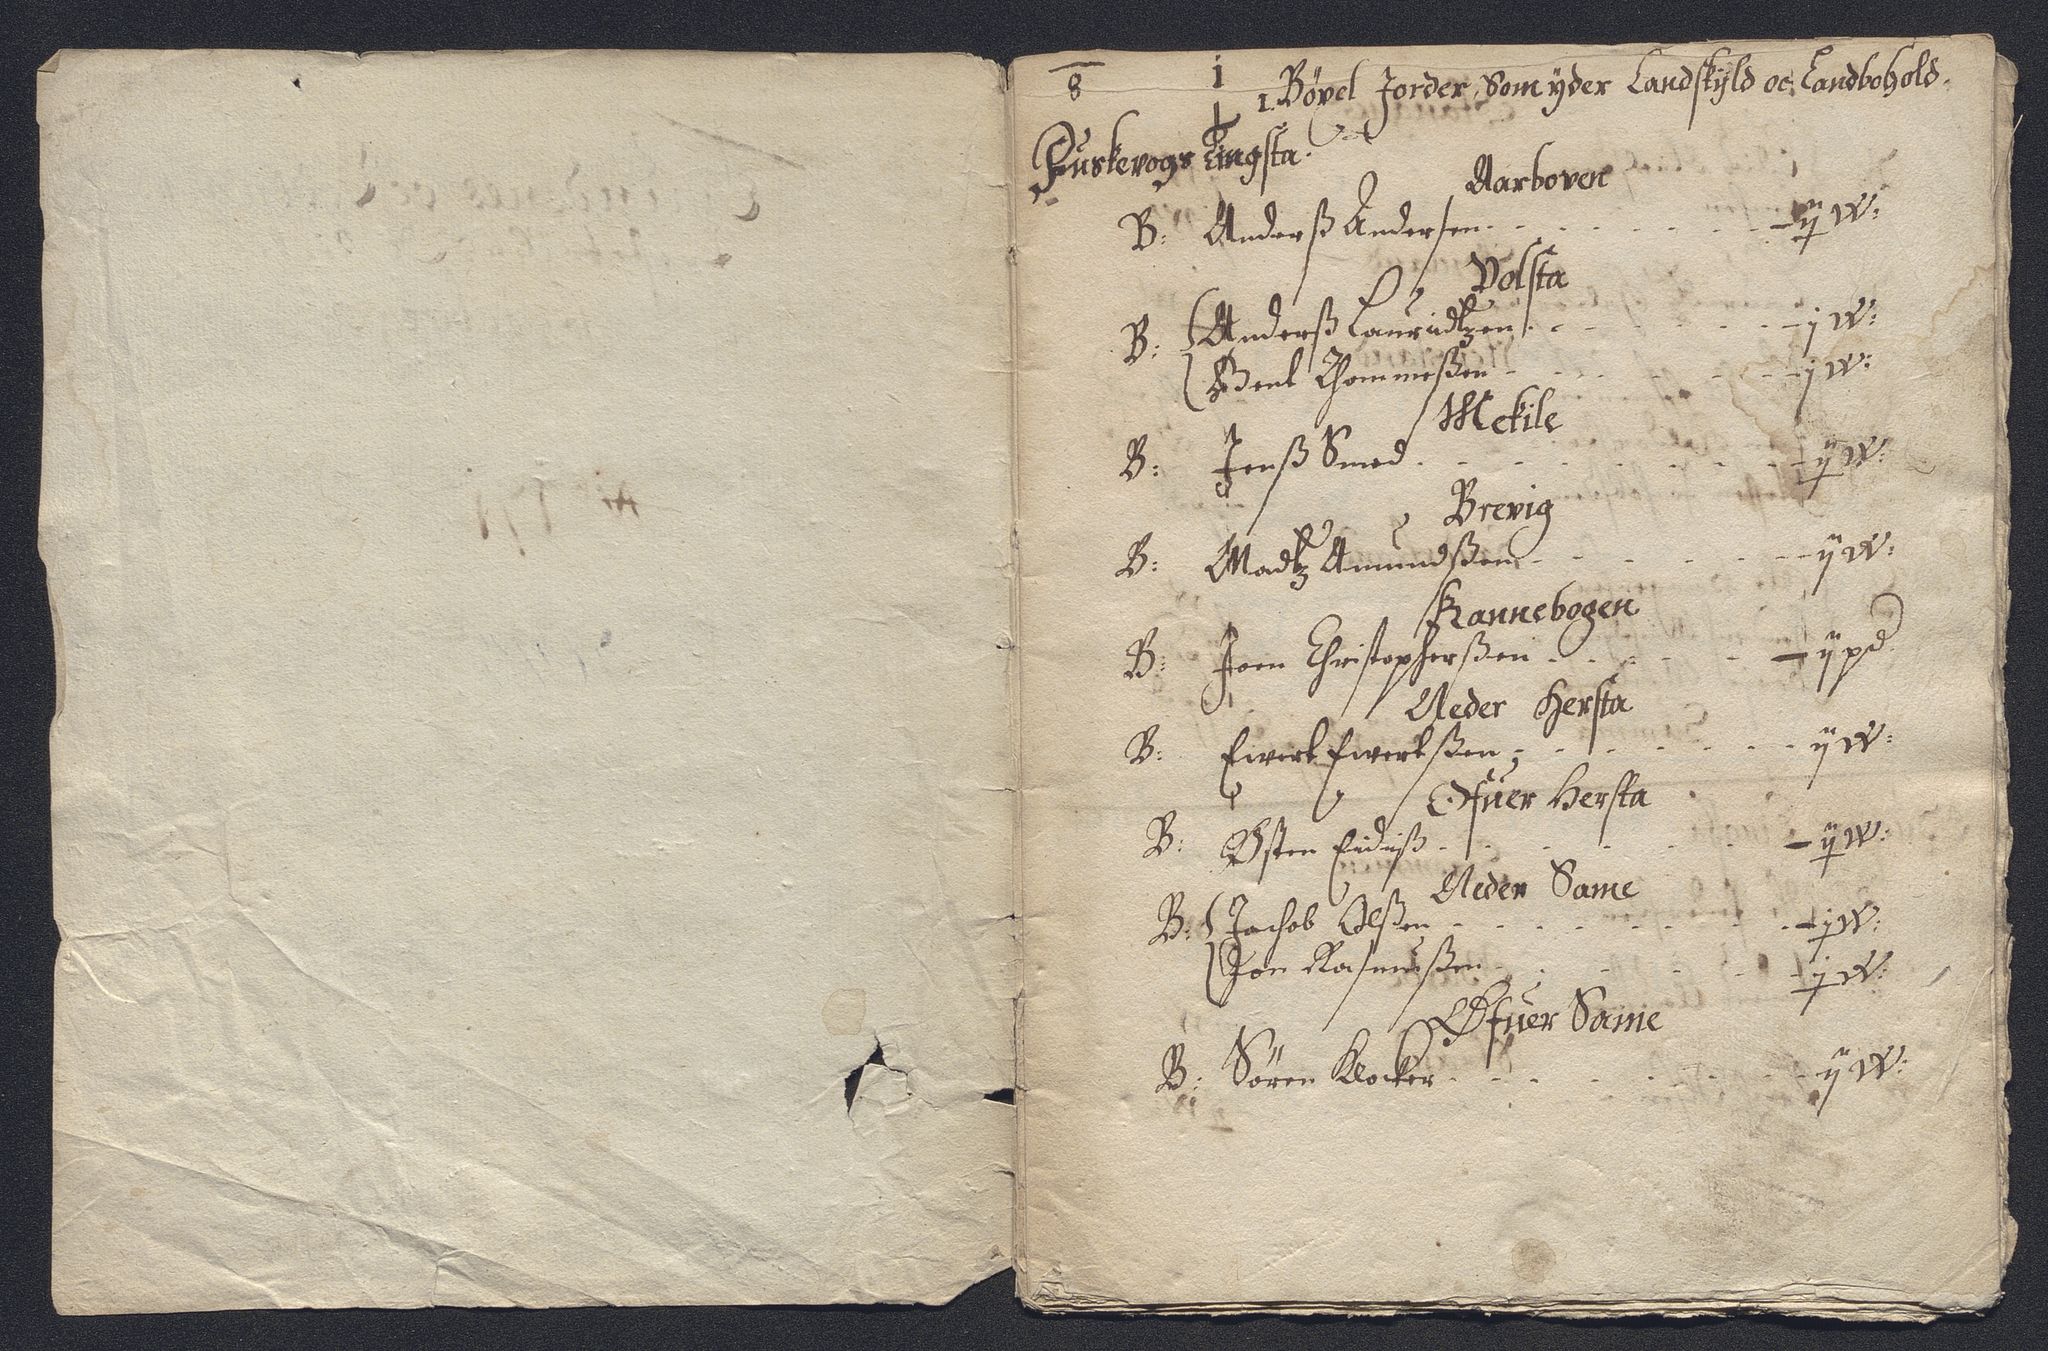 8 i
1. Bøxel Jorder Som yder Landskyld oc Landbohold.
Fuskevogs Tingsta.
Aarboven
B: Anderß Andersen - - - ij W:
Volsta
B: Anderß Lauridtzen - - - j W:
Bent Thommeßen - - - j W:
Mekile
B: Jenß Smed - - - ij W:
Brevig
B: Madtz Amundßen - - - ij W:
Rannebogen
B: Joen Christopherßen - - - ij pd
Neder Hersta
B: Ewert Ewertßen - - - ij W:
Ofuer Hersta
B: Østen - - - ij W:
Neder Same
B: Jachob Olßen - - - j W:
Jon Rasmußen - - - j W:
Ofuer Same
B: Sören Klocker - - - ij W: